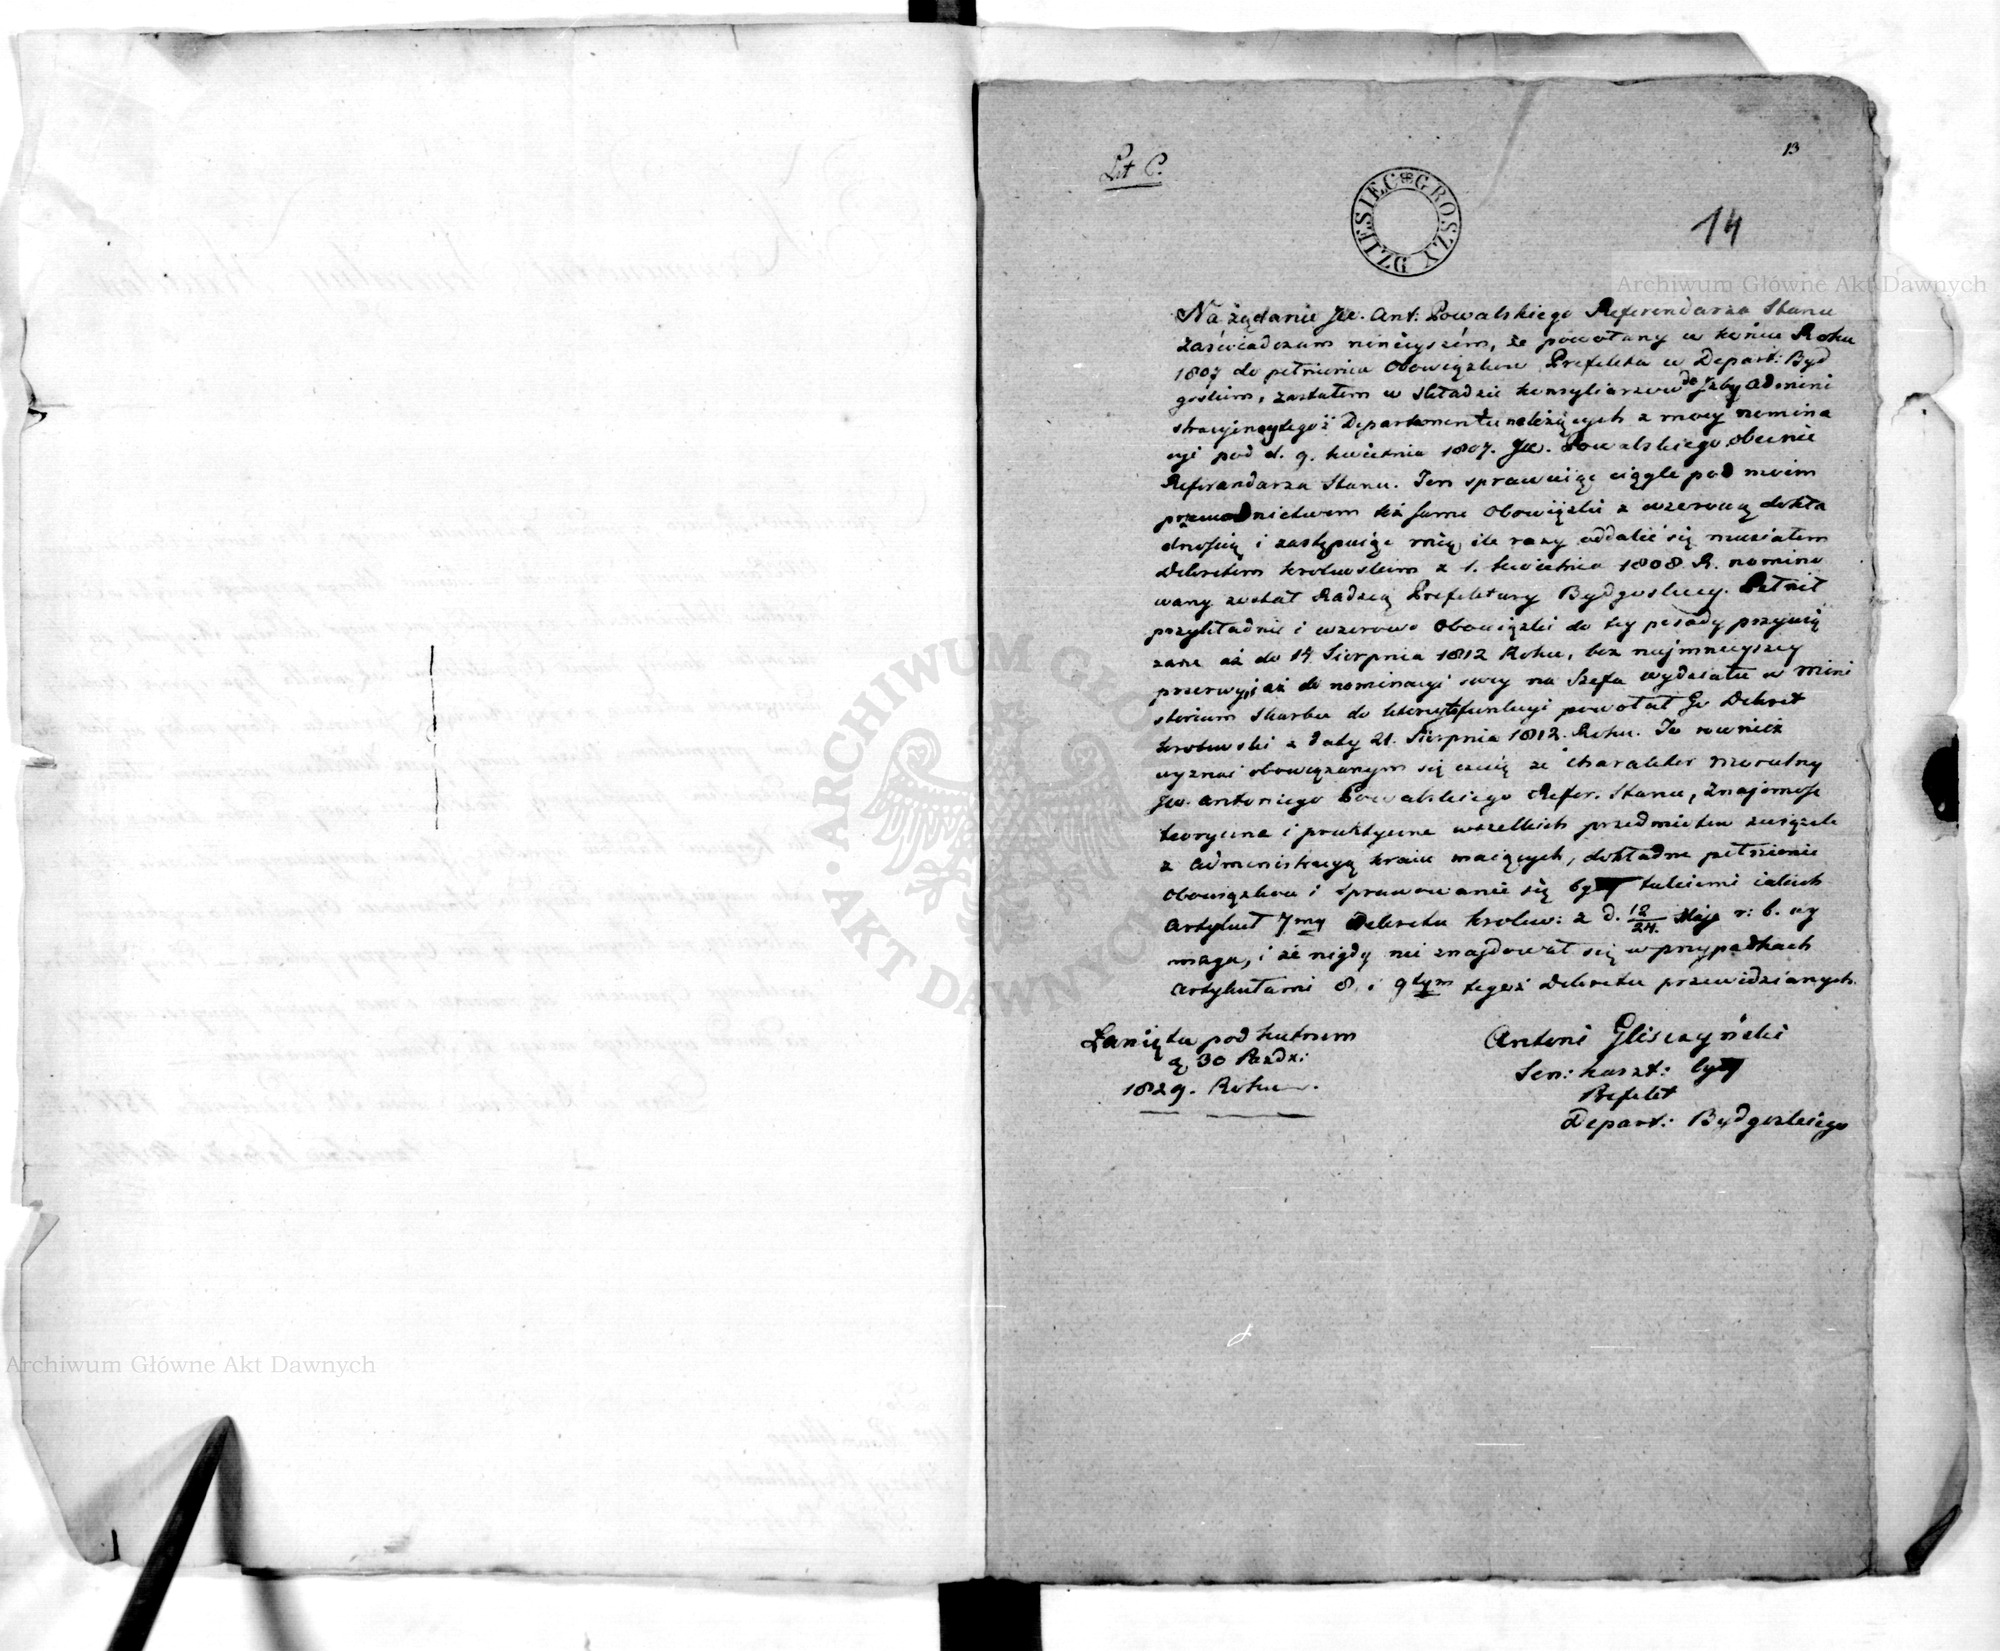 Lit C.
13
DZIESIEC GROSZY
14
Archiwum Główne Akt Dawnych
Na żądanie JW. Ant: Powalskiego Referendarza Stanu
Zaświadczam nineyszém, że powołany w końcu Roku
1807 do pełnienia Obowiązków Prefekta w Depart: Byd
goskim, zastałem w składzie konsyliarzów do Izby Admini
stracyjney tegoż Departamentu należących z mocy nomina
cyi pod d. 9. kwietnia 1807. JW. Powalskiego obecnie
Referendarza Stanu. Ten sprawuiąc ciągle pod moim
przewodnictwem też same Obowiązki z wzorową dokła
dnością i zastępuiąc mię, ile razy oddalić się musiałem
Dekretem krolewskim z 1. kwietnia 1808 R. nomino
wany został Radzcą Prefektury Bydgoskiey. Pełnił
przykładnie i wzorowo Obowiązki do tey posady przywią
zane aż do 14 Sierpnia 1812 Roku, bez naymnieyszey
przerwy, i aż do nominacyi swey na Szefa wydziału w Mini
sterium Skarbu do którey to funkcyi powołał Go Dekret
krolewski z daty 21. Sierpnia 1812. Roku. Ja rownież
wyznać obowiązanym się czuię że charakter moralny
JW. Antoniego Powalskiego Refer. Stanu, Znajomość
teoryczna i praktyczna wszelkich przedmiotów związek
z Administracyą kraiu maiących, dokładne pełnienie
Obowiązków i sprawowanie się były takiemi iakich
Artykuł 7my Dekretu krolew: z d. 12/24. Maja r: b. wy
maga, i że nigdy nie znajdował się w przypadkach
Artykułami 8 i 9tym tegoż Dekretu przewidzianych.
Łanięta pod Kutnem
d. 30 Paźdz:
1829. Roku.
Antoni Gliszczyński
Sen: kaszt: były
Prefekt
Depart: Bydgoskiego
ARCHIWUM GŁÓWNE AKT DAWNYCH
Archiwum Główne Akt Dawnych